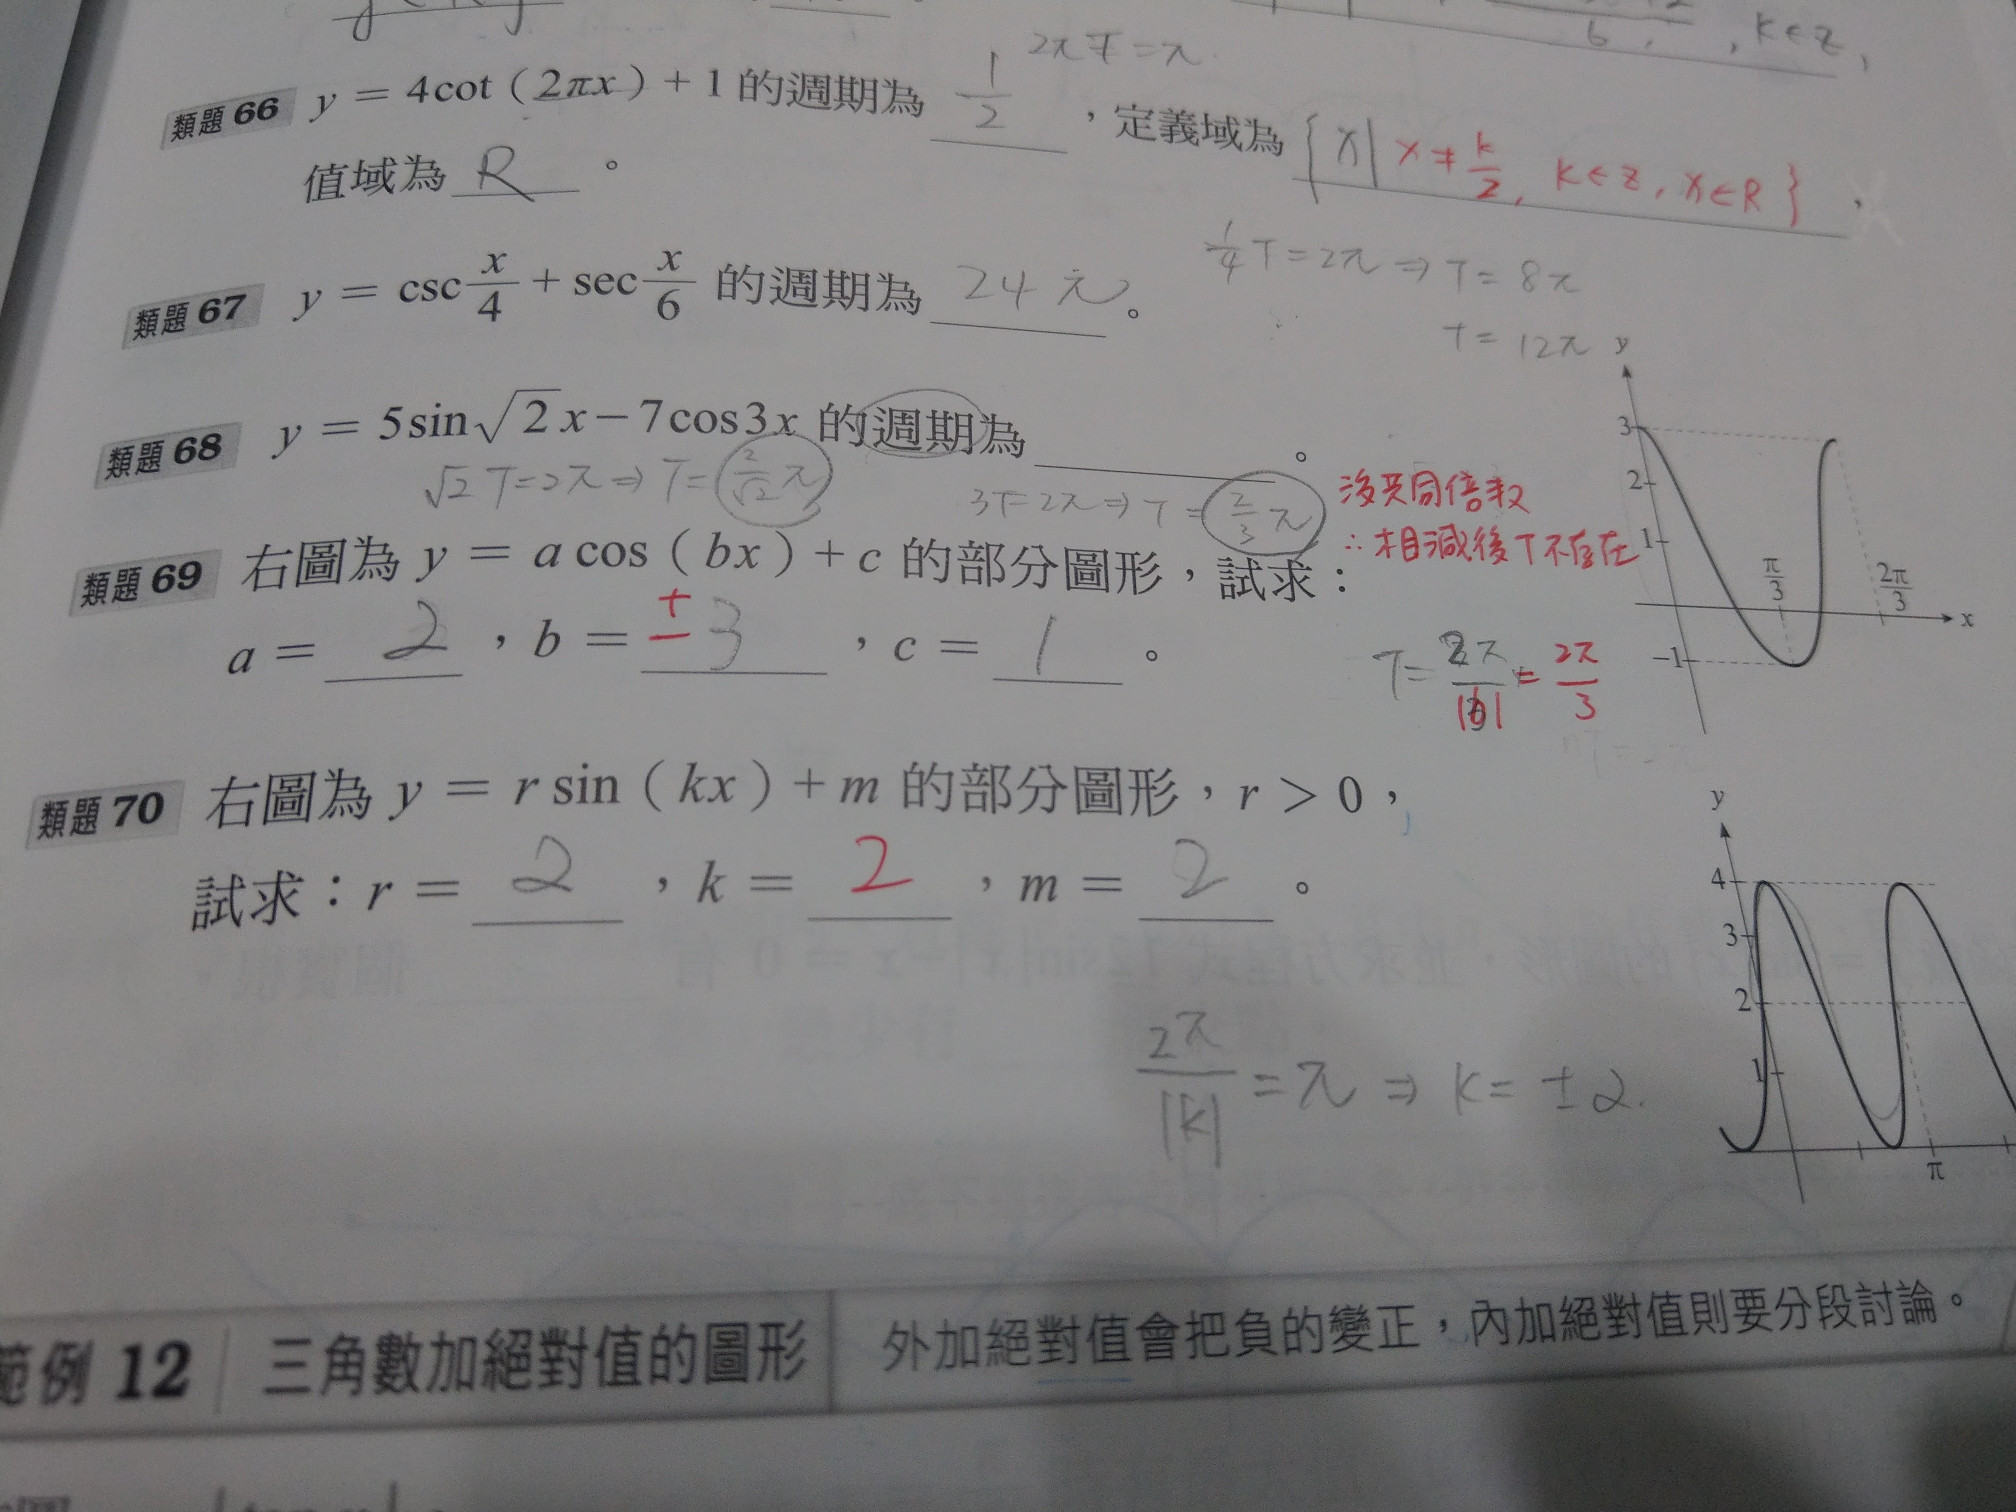 , k∈z,
6
類題 66 y = 4cot（2πx）+ 1 的週期為 1/2 ，定義域為 {x| x ≠ k/2, k∈z, x∈R} ，
2πT = π
值域為 R 。
類題 67 y = csc x/4 + sec x/6 的週期為 24π 。
1/4 T = 2π ⇒ T = 8π
T = 12π
類題 68 y = 5sin√2x − 7cos3x 的週期為 ＿＿ 。
√2 T = 2π ⇒ T = 2/√2 π
3T = 2π ⇒ T = 2/3 π
沒共同倍數
∴ 相減後 T 不存在
類題 69 右圖為 y = a cos（bx）+ c 的部分圖形，試求：
a = 2 ，b = ±3 ，c = 1 。
T = 2π/|b| = 2π/3
y
3
2
1
π/3
2π/3
x
−1
類題 70 右圖為 y = r sin（kx）+ m 的部分圖形，r > 0，
試求：r = 2 ，k = 2 ，m = 2 。
2π/|k| = π ⇒ k = ±2.
y
4
3
2
1
π
範例 12 三角數加絕對值的圖形 外加絕對值會把負的變正，內加絕對值則要分段討論。